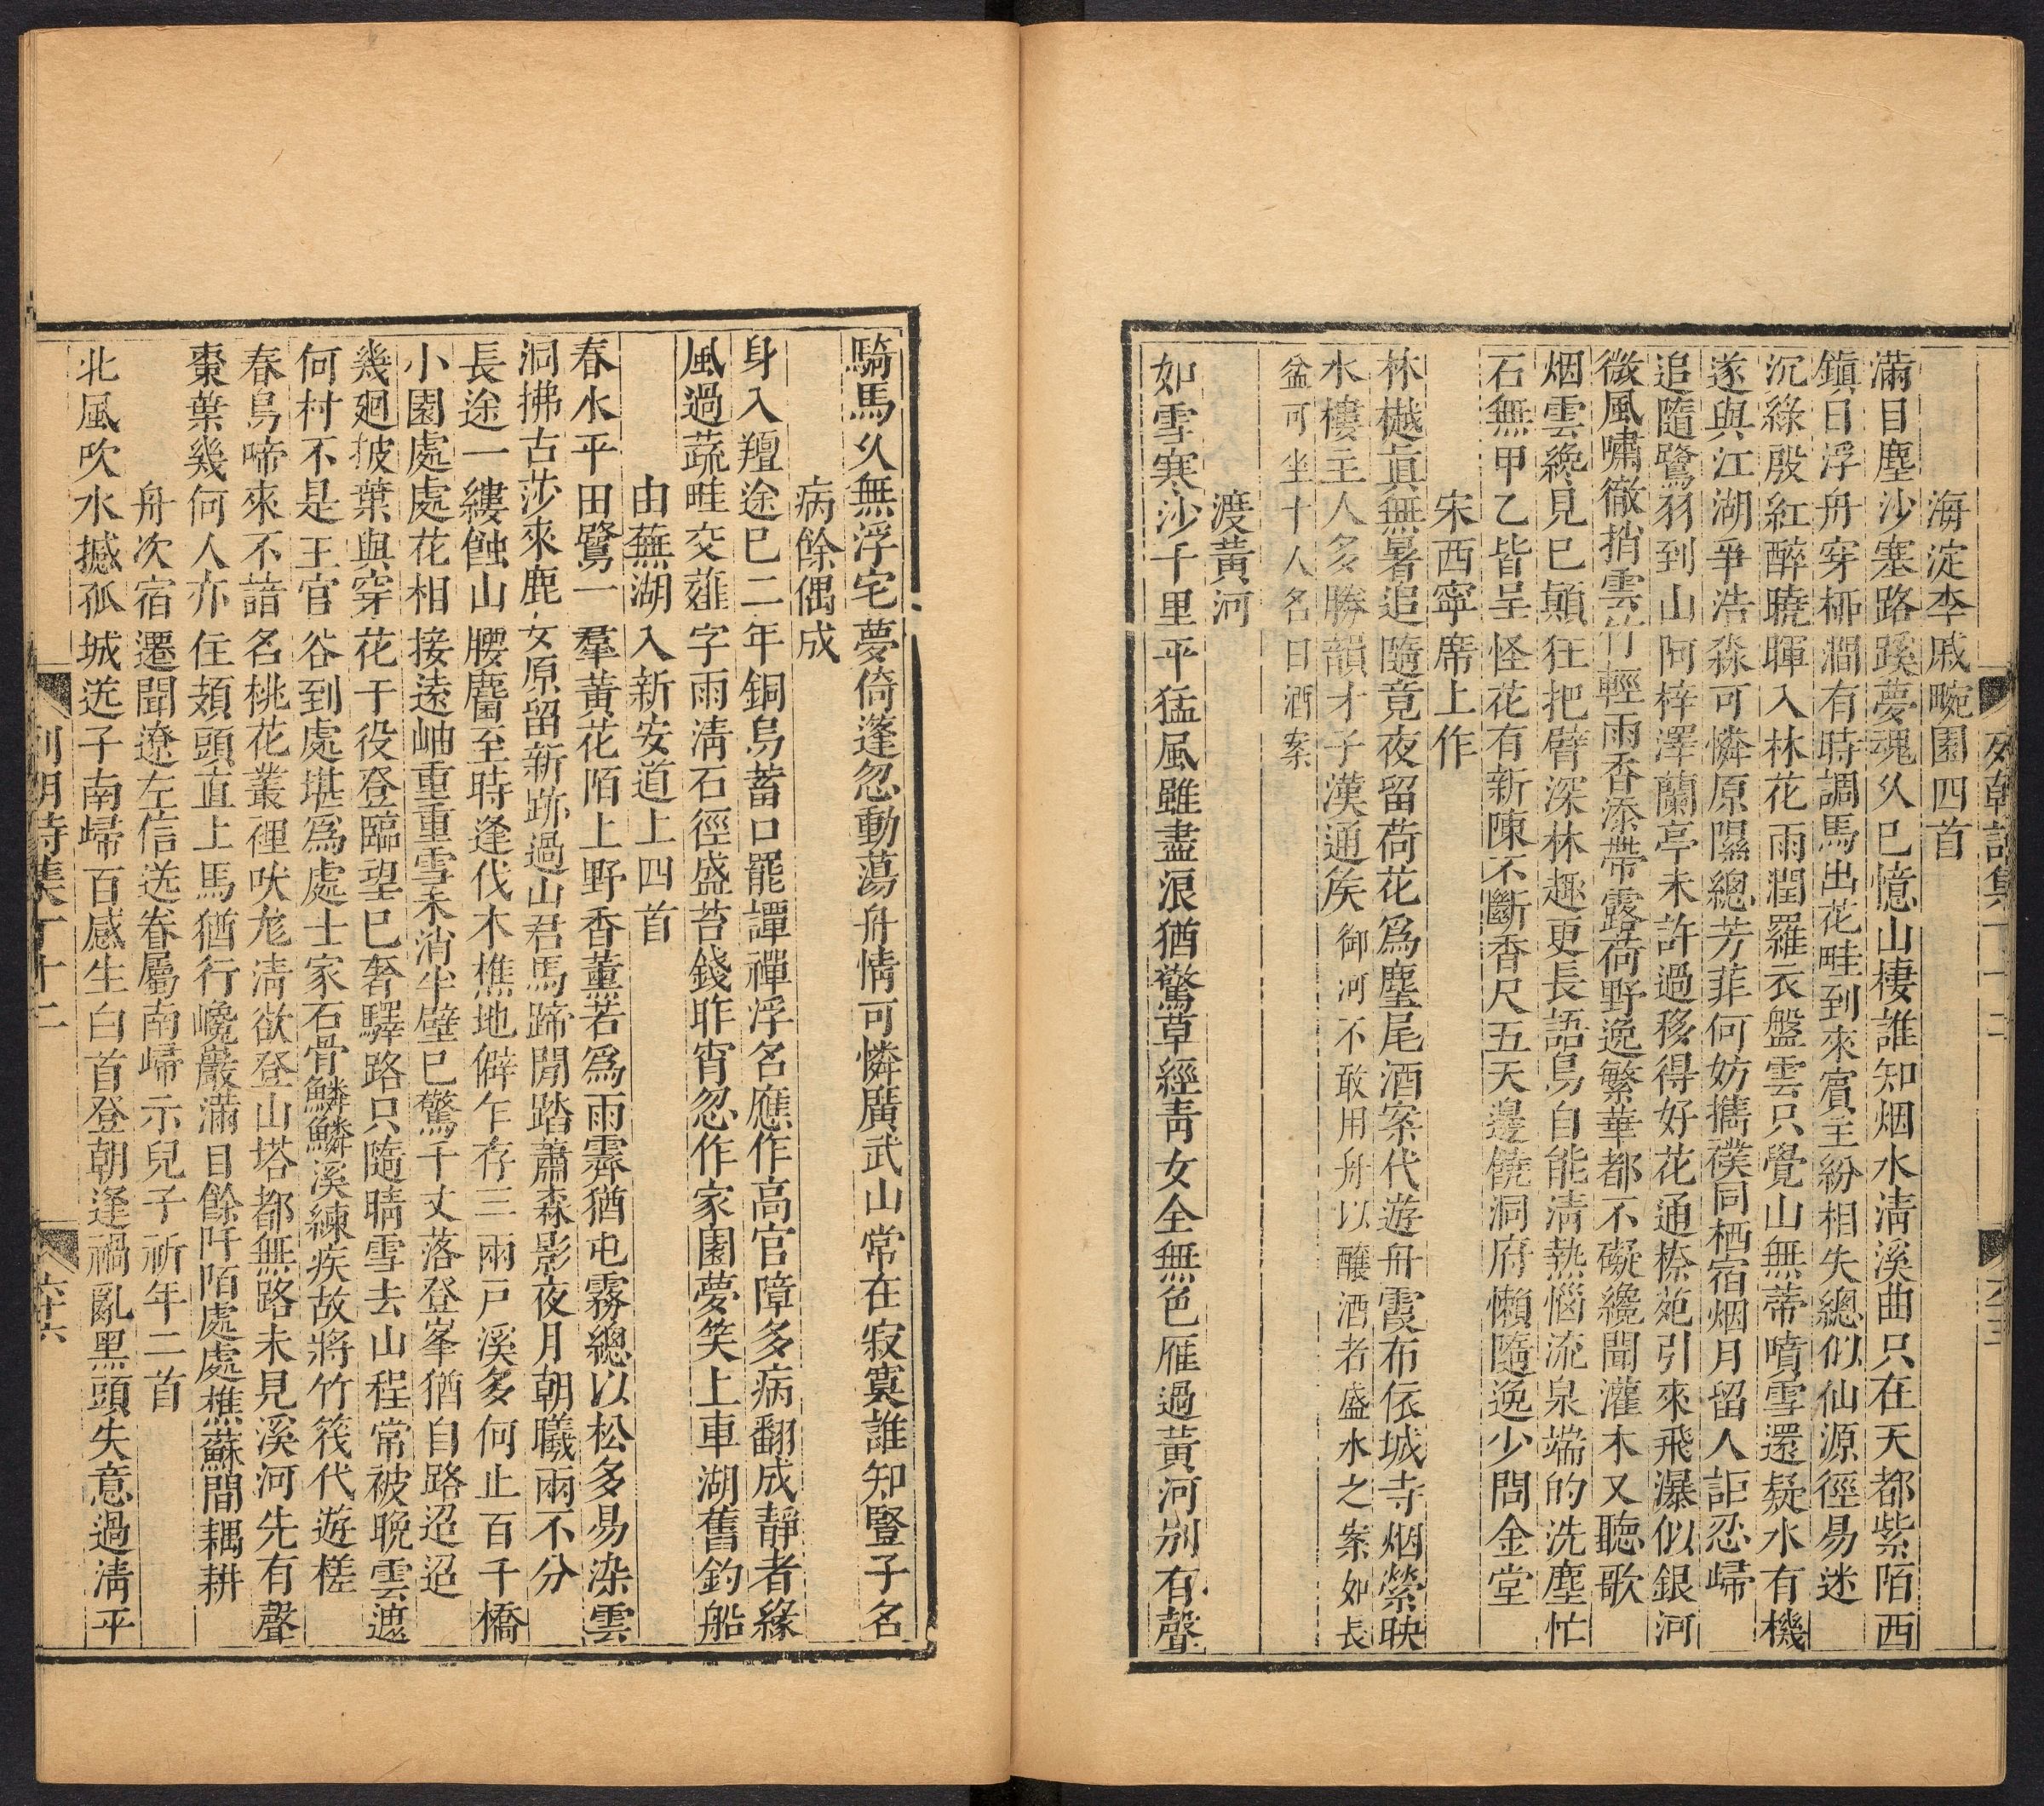 海淀李戚畹園四首
滿目塵沙塞路蹊夢魂久已憶山棲誰知烟水淸溪曲只在天都紫陌西
鎭日浮舟穿柳澗有時調馬出花畦到來賓主紛相失總似仙源徑易迷
沉綠殷紅醉曉暉入林花雨潤羅衣盤雲只覺山無蒂噴雪還疑水有機
遂與江湖爭浩淼可憐原隰總芳菲何妨攜襆同栖宿烟月留人詎忍歸
追隨鷺羽到山阿梓澤蘭亭未許過移得好花通㮈苑引來飛瀑似銀河
微風嘯徹捎雲竹輕雨香添帶露荷野逸繁華都不礙纔聞灌木又聽歌
烟雲纔見已顚狂把臂深林趣更長語鳥自能淸熱惱流泉端的洗塵忙
石無甲乙皆呈怪花有新陳不斷香尺五天邊饒洞府懶隨逸少問金堂
宋西寧席上作
林樾眞無暑追隨竟夜留荷花爲麈尾酒案代遊舟霞布依城寺烟縈映
水樓主人多勝韻才子漢通矦御河不敢用舟以釀酒者盛水之案如長
盆可坐十人名曰酒案
渡黃河
如雪寒沙千里平猛風雖盡浪猶驚草經靑女全無色雁過黃河別有聲
騎馬久無浮宅夢倚蓬忽動蕩舟情可憐廣武山常在寂寞誰知豎子名
病餘偶成
身入羶途已二年銅烏蓄口罷譚禪浮名應作高官障多病翻成靜者緣
風過蔬畦交薤字雨淸石徑盛苔錢昨宵忽作家園夢笑上車湖舊釣船
由蕪湖入新安道上四首
春水平田鷺一羣黃花陌上野香薰若爲雨霽猶屯霧總以松多易染雲
洞拂古莎來鹿女原留新跡過山君馬蹄閒踏蕭森影夜月朝曦兩不分
長途一縷蝕山腰麕至時逢伐木樵地僻乍存三兩戶溪多何止百千橋
小園處處花相接遠岫重重雪未消半壁已驚千丈落登峯猶自路迢迢
幾廻披葉與穿花于役登臨望已奢驛路只隨晴雪去山程常被晚雲遮
何村不是王官谷到處堪爲處士家石骨鱗鱗溪練疾故將竹筏代遊槎
春鳥啼來不諳名桃花叢裡吠尨淸欲登山塔都無路未見溪河先有聲
棗葉幾何人亦住頰頭直上馬猶行巉巖滿目餘阡陌處處樵蘇間耦耕
舟次宿遷聞遼左信送眷屬南歸示兒子祈年二首
北風吹水撼孤城送子南歸百感生白首登朝逢禍亂黑頭失意過淸平